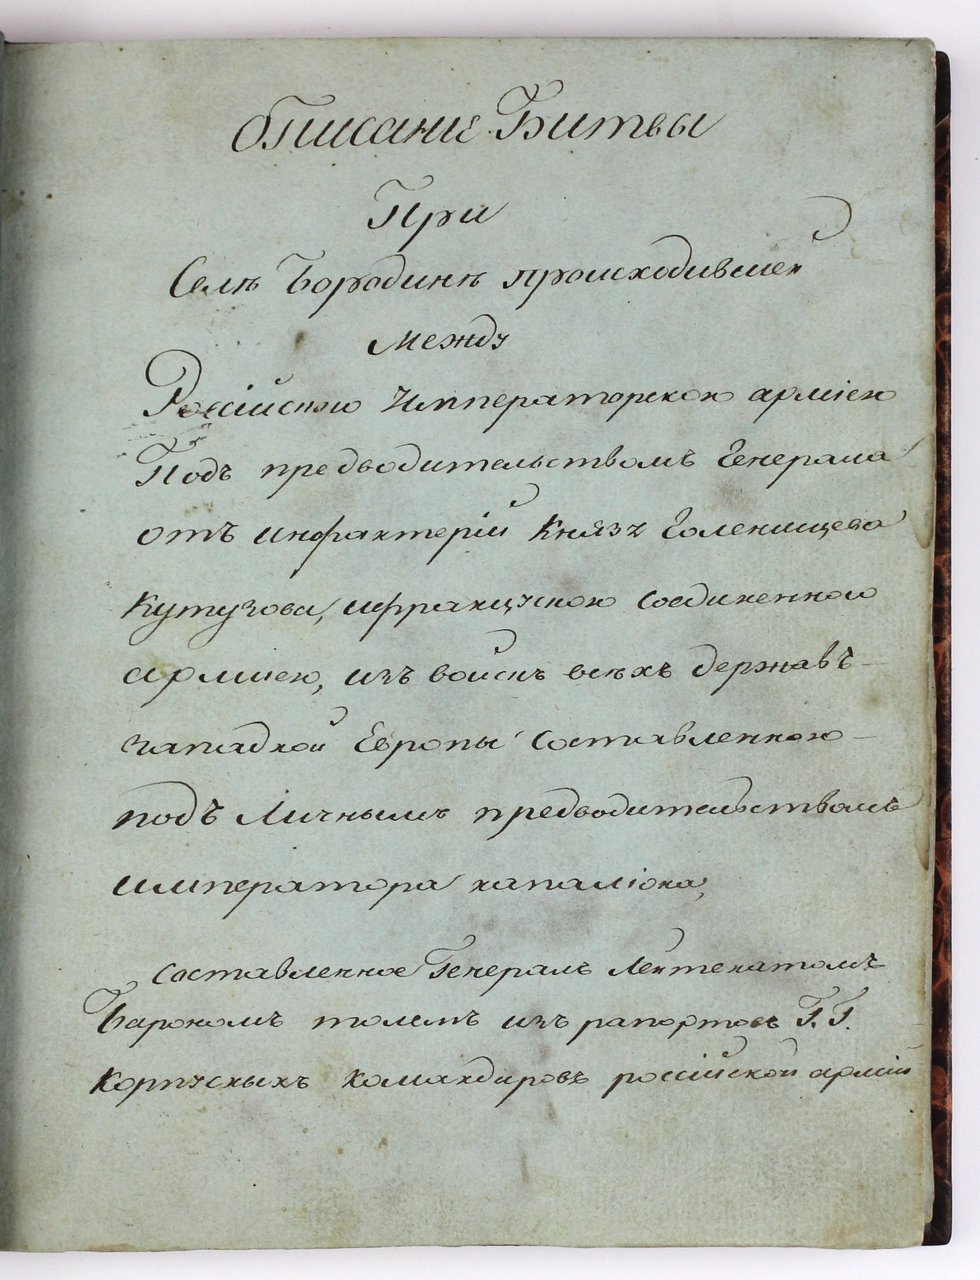 Описание Битвы
При
Селѣ Бородинѣ происходившей
Между
Россійскою Императорскою армiею
Подъ предводительствомъ Генерала
отъ инфантерiй Князя Голенищева
Кутузова, ифранцускою соединенною
армiею, изъ войскъ всѣхъ державъ
западной Европы составленною
подъ Личнымъ предводительствомъ
императора напалiона,
составленное Генералъ Лейтенатомъ
Барономъ толемъ изъ рапортовъ Г.Г.
Корпускыхъ командировъ россiйской армiи